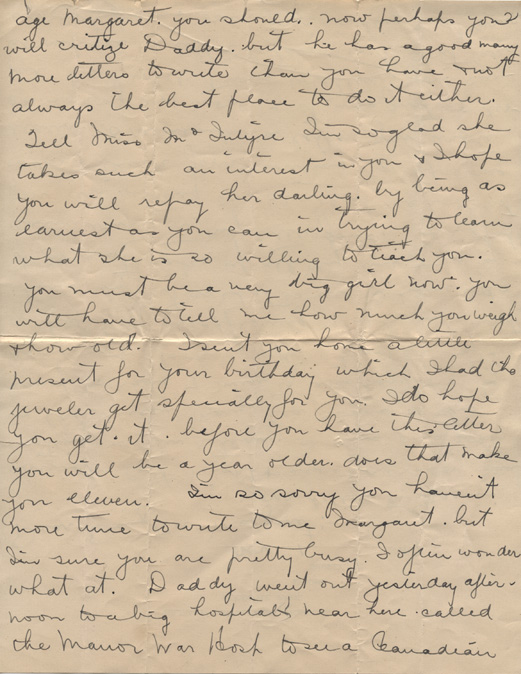 age Margaret. you should.. now perhaps you?
will critize Daddy. but he has a good many
more letters to write than you have & not
always the best place to do it either.
Tell Miss McIntyre I'm so glad she
takes such an interest in you & I hope
you will repay her darling. by being as
earnest as you can in trying to learn
what she is so willing to teach you.
you must be a very big girl now. you
will have to tell me how much you weigh
& how old. I sent you home a little
present for your birthday which I had the
jeweler get specially for you. I do hope
you get. it. before you have this letter
you will be a year older. does that make
you eleven. I'm so sorry you haven't
more time to write to me Margaret. but
I'm sure you are pretty busy. I often wonder
what at. Daddy went out yesterday after-
noon to a big hospital near here. called
the Manor War Hosp to see a Canadian